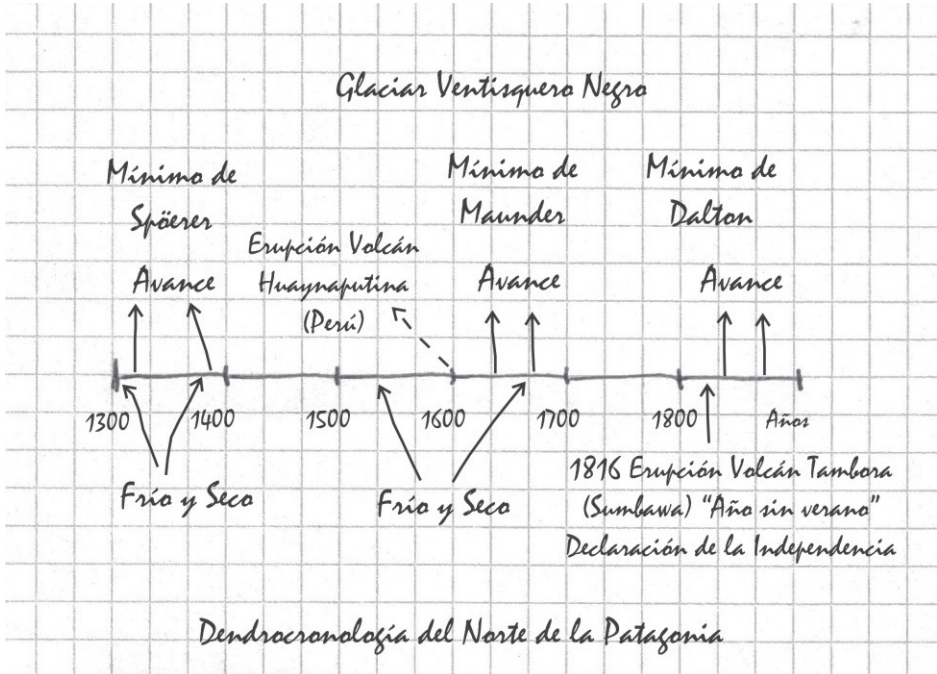 Glaciar Ventisquero Negro
Mínimo de
Spöerer
Avance
Erupción Volcán
Huaynaputina
(Perú)
Mínimo de
Maunder
Avance
Mínimo de
Dalton
Avance
1300
1400
1500
1600
1700
1800
Años
Frío y Seco
Frío y Seco
1816 Erupción Volcán Tambora
(Sumbawa) “Año sin verano”
Declaración de la Independencia
Dendrocronología del Norte de la Patagonia